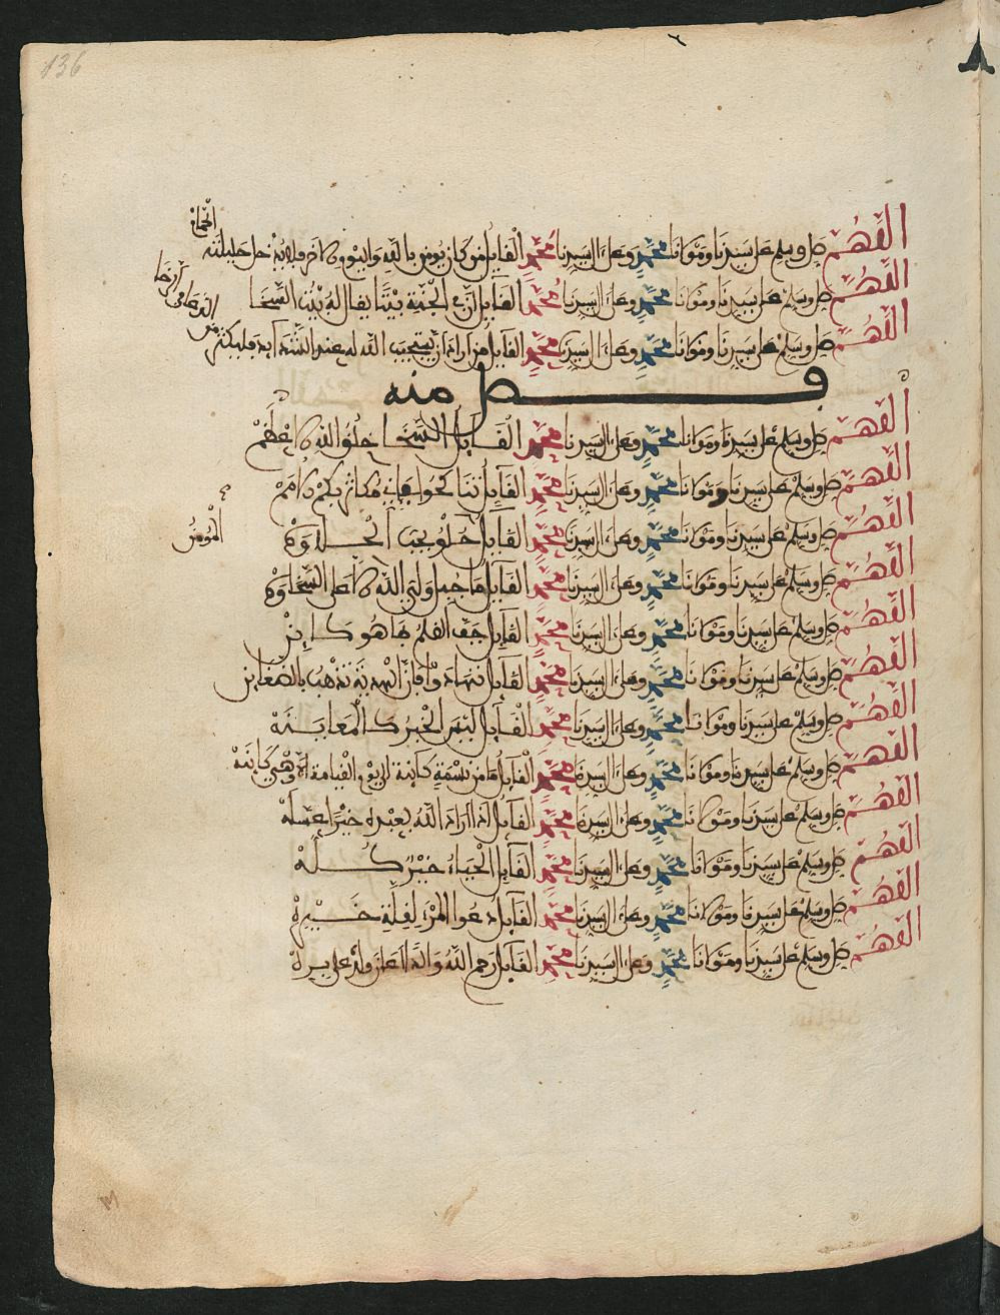 136
اللهم صل وسلم على سيدنا ومولانا محمد وعلى ال سيدنا محمد القايل من كان يومن بالله واليوم الاخر فلا يدخل حليلته
الحمام
اللهم صل وسلم على سيدنا ومولانا محمد وعلى ال سيدنا محمد القايل ان في الجنة بيتا يقال له بيت السخا
اللهم صل وسلم على سيدنا ومولانا محمد وعلى ال سيدنا محمد القايل من اراد ان يستجيب الله له عند الشدايد فليكثر
من الدعا في الرخا
فصل منه
اللهم صل وسلم على سيدنا ومولانا محمد وعلى ال سيدنا محمد القايل السخا خلق الله الاعظم
اللهم صل وسلم على سيدنا ومولانا محمد وعلى ال سيدنا محمد القايل تناكحوا فاني مكاثر بكم الامم
اللهم صل وسلم على سيدنا ومولانا محمد وعلى ال سيدنا محمد القايل حلو يحب الحلاوة
المومن
اللهم صل وسلم على سيدنا ومولانا محمد وعلى ال سيدنا محمد القايل ما جبل ولي الله الا على السخاوة
اللهم صل وسلم على سيدنا ومولانا محمد وعلى ال سيدنا محمد القايل جف القلم بما هو كاين
اللهم صل وسلم على سيدنا ومولانا محمد وعلى ال سيدنا محمد القايل تهادوا فان الهدية تذهب بالضغاين
اللهم صل وسلم على سيدنا ومولانا محمد وعلى ال سيدنا محمد القايل ليس الخبر كالمعاينة
اللهم صل وسلم على سيدنا ومولانا محمد وعلى ال سيدنا محمد القايل ما من نسمة كاينة الى يوم القيامة الا وهي كاينة
اللهم صل وسلم على سيدنا ومولانا محمد وعلى ال سيدنا محمد القايل اذا اراد الله بعبده خيرا عسله
اللهم صل وسلم على سيدنا ومولانا محمد وعلى ال سيدنا محمد القايل الحياء خير كله
اللهم صل وسلم على سيدنا ومولانا محمد وعلى ال سيدنا محمد القايل
اللهم صل وسلم على سيدنا ومولانا محمد وعلى ال سيدنا محمد القايل رحم الله والدا اعان ولده على بره